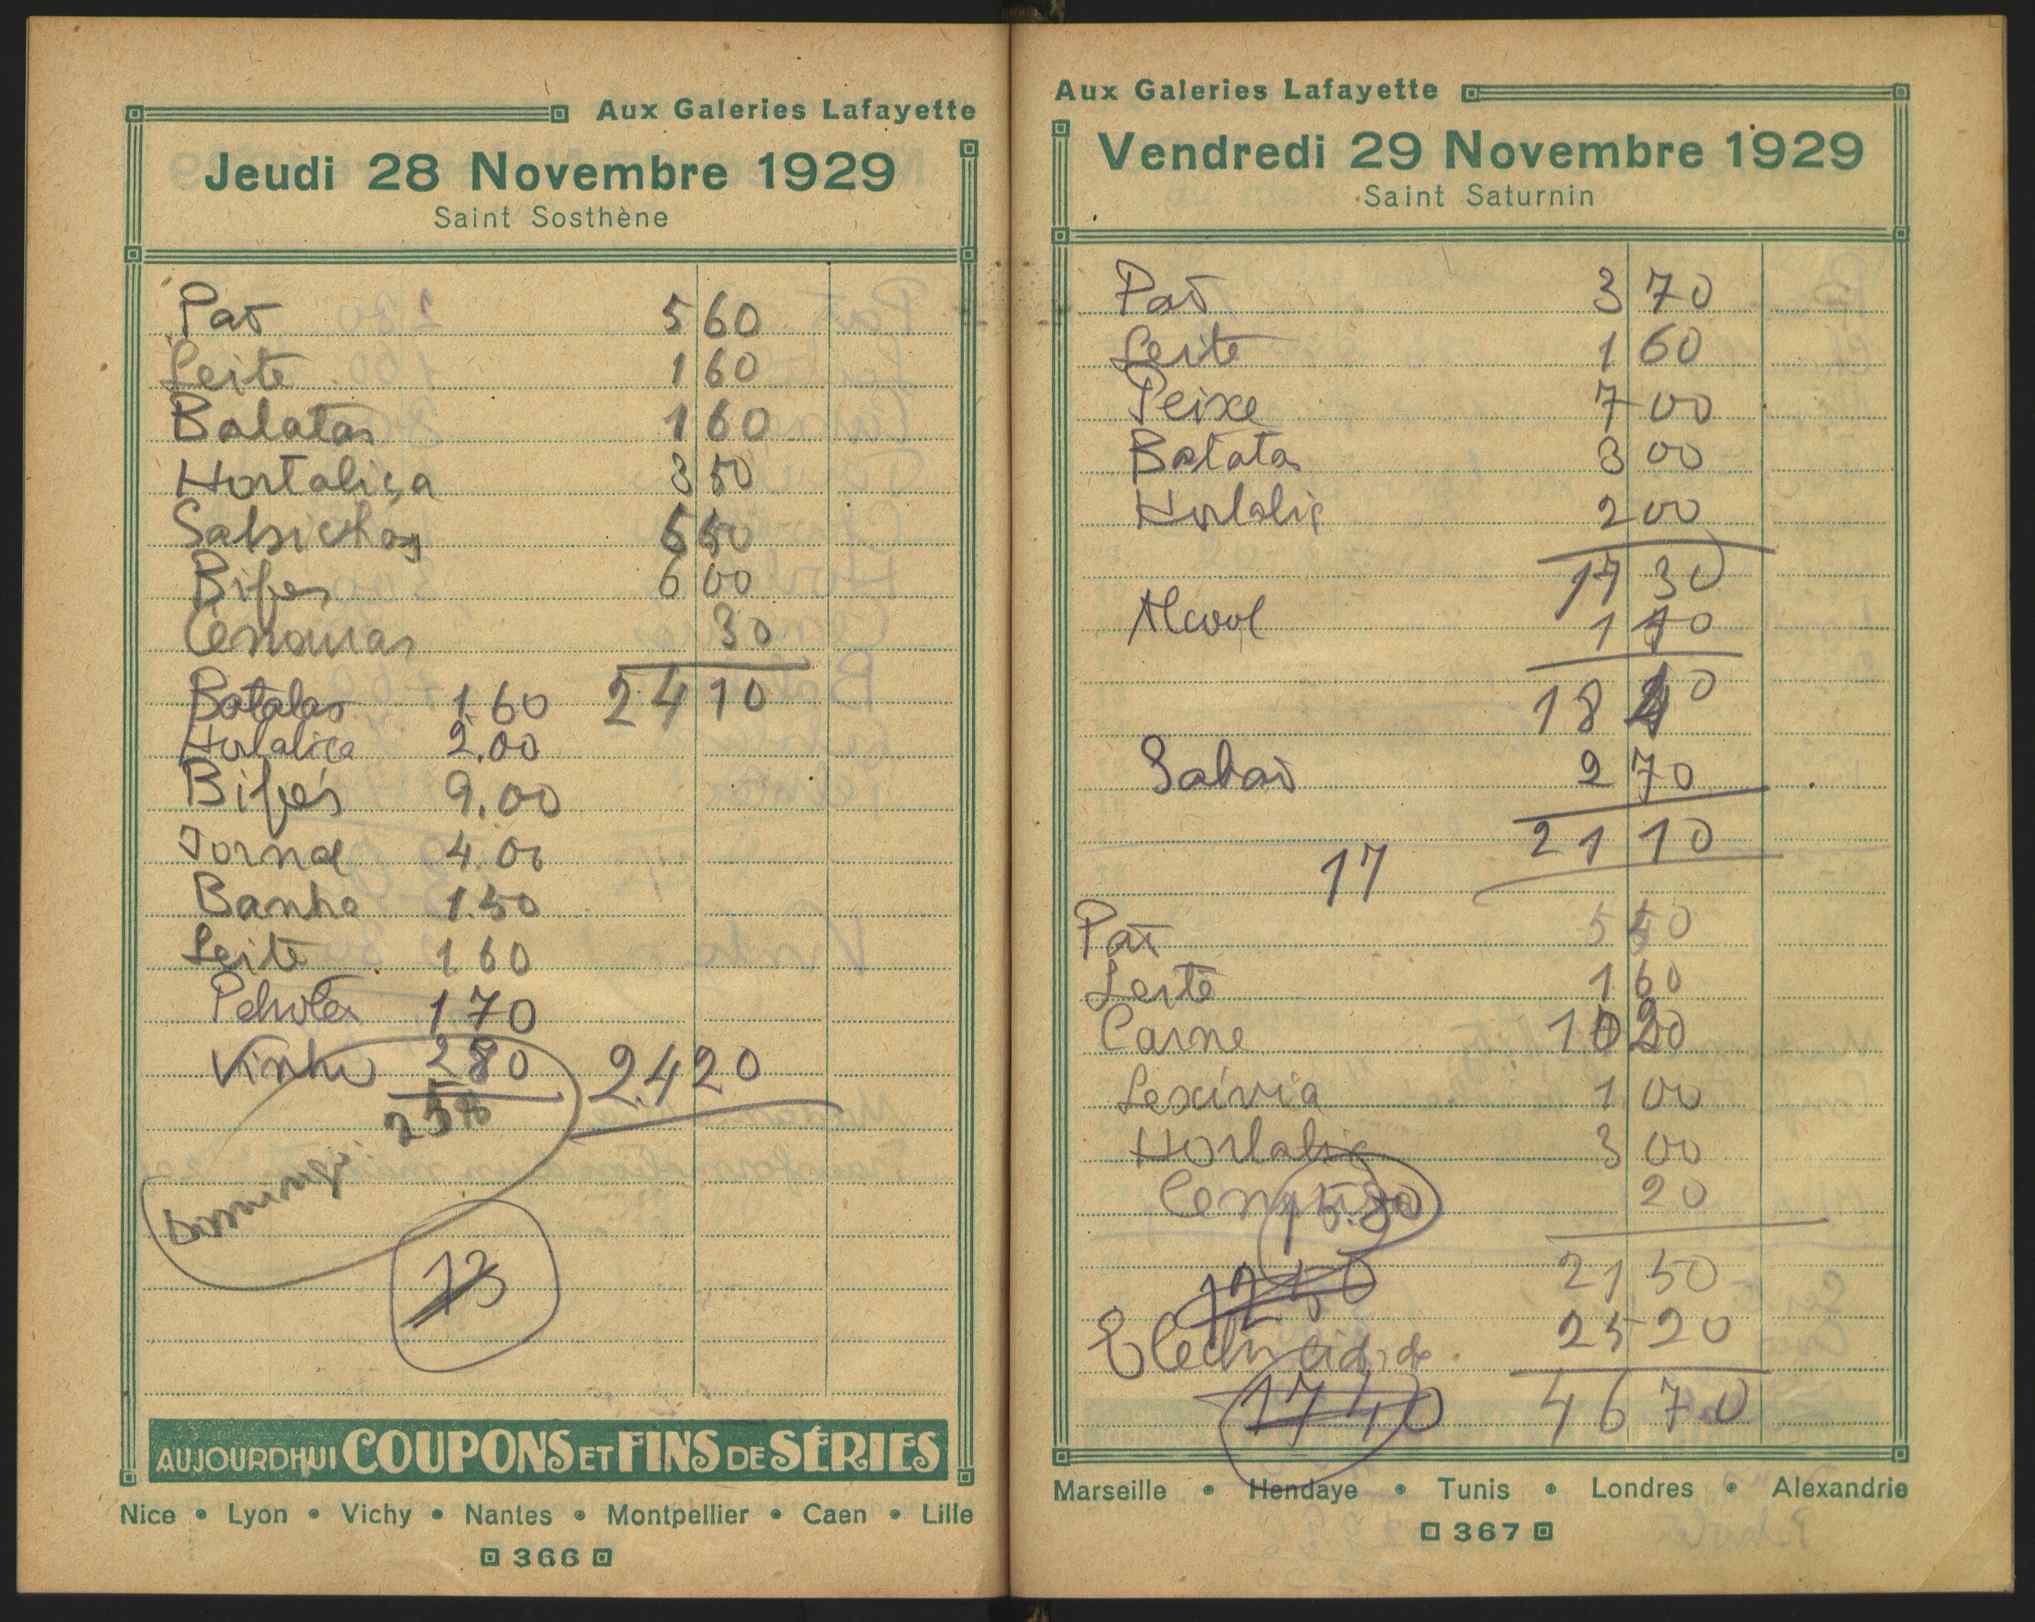 Aux Galeries Lafayette
Jeudi 28 Novembre 1929
Saint Sosthène
Paõ 5 60
Leite 1 60
Batatas 1 60
Hortaliça 3 50
Salsichas 5 50
Bifes 6 00
Cenouras 30
24 10
Batatas 1.60
Hortaliça 2.00
Bifes 9.00
Jornal 4.00
Banha 1.50
Leite 1.60
Petrolex 1 70
Vinho 2 80
24 20
258
Domingo
13
AUJOURDHUI COUPONS ET FINS DE SÉRIES
Nice • Lyon • Vichy • Nantes • Montpellier • Caen • Lille
366
Aux Galeries Lafayette
Vendredi 29 Novembre 1929
Saint Saturnin
Paõ 3 70
Leite 1 60
Peixe 7 00
Batata 3 00
Hortaliç 2 00
17 30
Alcool 1 10
18 40
Sabaõ 2 70
21 10
17
Paõ 5 50
Leite 1 60
Carne 10 20
Lexivia 1 00
Hortaliç 3 00
20
15.80
21 50
12 50
Electricidade 25 20
17 40
46 70
Marseille • Hendaye • Tunis • Londres • Alexandrie
367